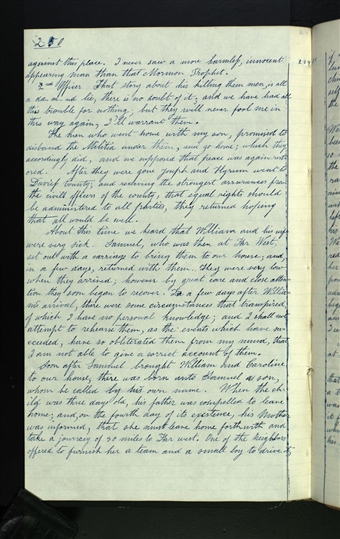 258
against this place. I never saw a more harmless, innocent
appearing man than that Mormon Prophet.
2nd Officer That story about his killing them men, is all
a da nd lie, there is no doubt of it, and we have had all
this trouble for nothing; but they will never fool me in
this way again, I'll warrant them.
The men who went home with my son, promised to
disband the Militia under them, and go home; which they
accordingly did, and we supposed that peace was again rest-
ored. After they were gone Joseph and Hyrum went to
Davies County, and receiving the strongest assurances from
the civil officers of the county, that equal rights should
be administered to all parties, they returned hoping
that all would be well.
About this time we heard that William and his wife
were very sick. Samuel, who was then at Far West,
set out with a carriage to bring them to our house; and,
in a few days, returned with them. They were very low
when they arrived; however by great care and close atten-
tion they soon began to recover. In a few days after Willia-
m's arrival, there were some circumstances that transpired,
of which I have no personal knowledge; and I shall not
attempt to rehearse them, as the events which have su-
cceeded, have so obliterated them from my mind, that
I am not able to give a correct account of them.
Soon after Samuel brought William and Caroline
to our house, there was born unto Samuel a son,
whom he called by his own name. When the ch-
ild was three days old, his father was compelled to leave
home; and, on the fourth day of its existence, his Mother
was informed, that she must leave home forthwith and
take a journey of 30 miles to Far West. One of the neighbors
offered to furnish her a team and a small boy to drive it,